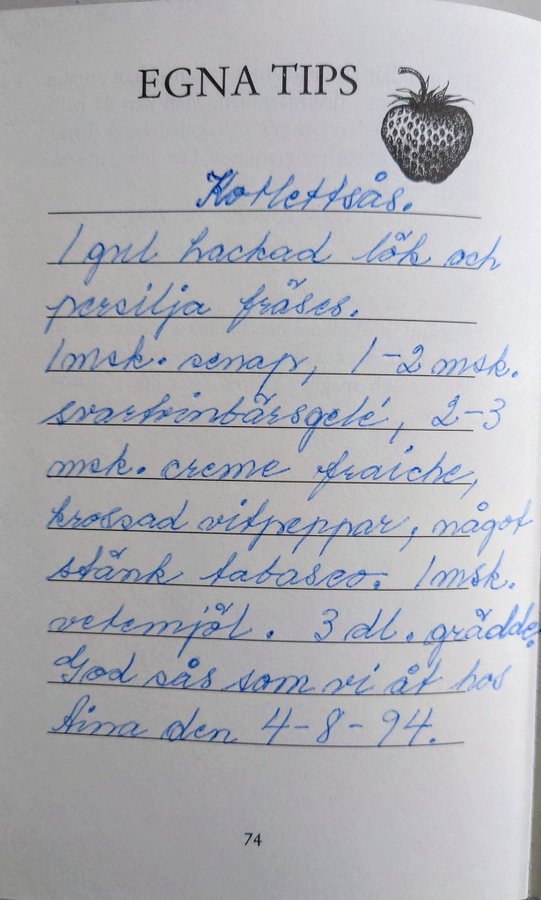 EGNA TIPS
Kotlettsås.
1 gul hackad lök och
persilja fräses.
1 msk. senap, 1-2 msk.
svartvinbärsgelé, 2-3
msk. creme fraiche,
krossad vitpeppar, något
stänk tabasco. 1 msk.
vetemjöl. 3 dl. grädde.
God sås som vi åt hos
Aina den 4-8-94.
74